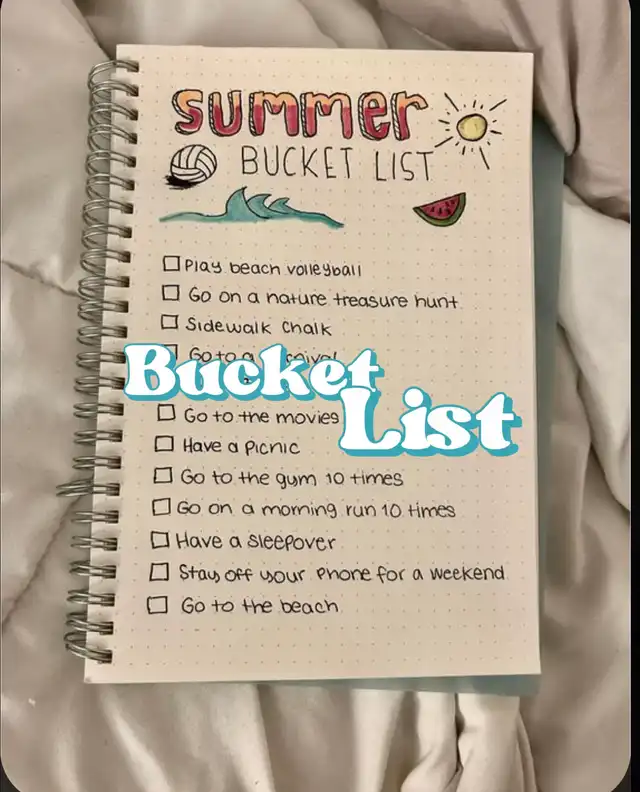 summer
BUCKET LIST
Play beach volleyball
Go on a nature treasure hunt
Sidewalk Chalk
Go to a
Bucket
List
Go to the movies
Have a Picnic
Go to the gym 10 times
Go on a morning run 10 times
Have a Sleepover
Stay off your Phone for a weekend
Go to the beach